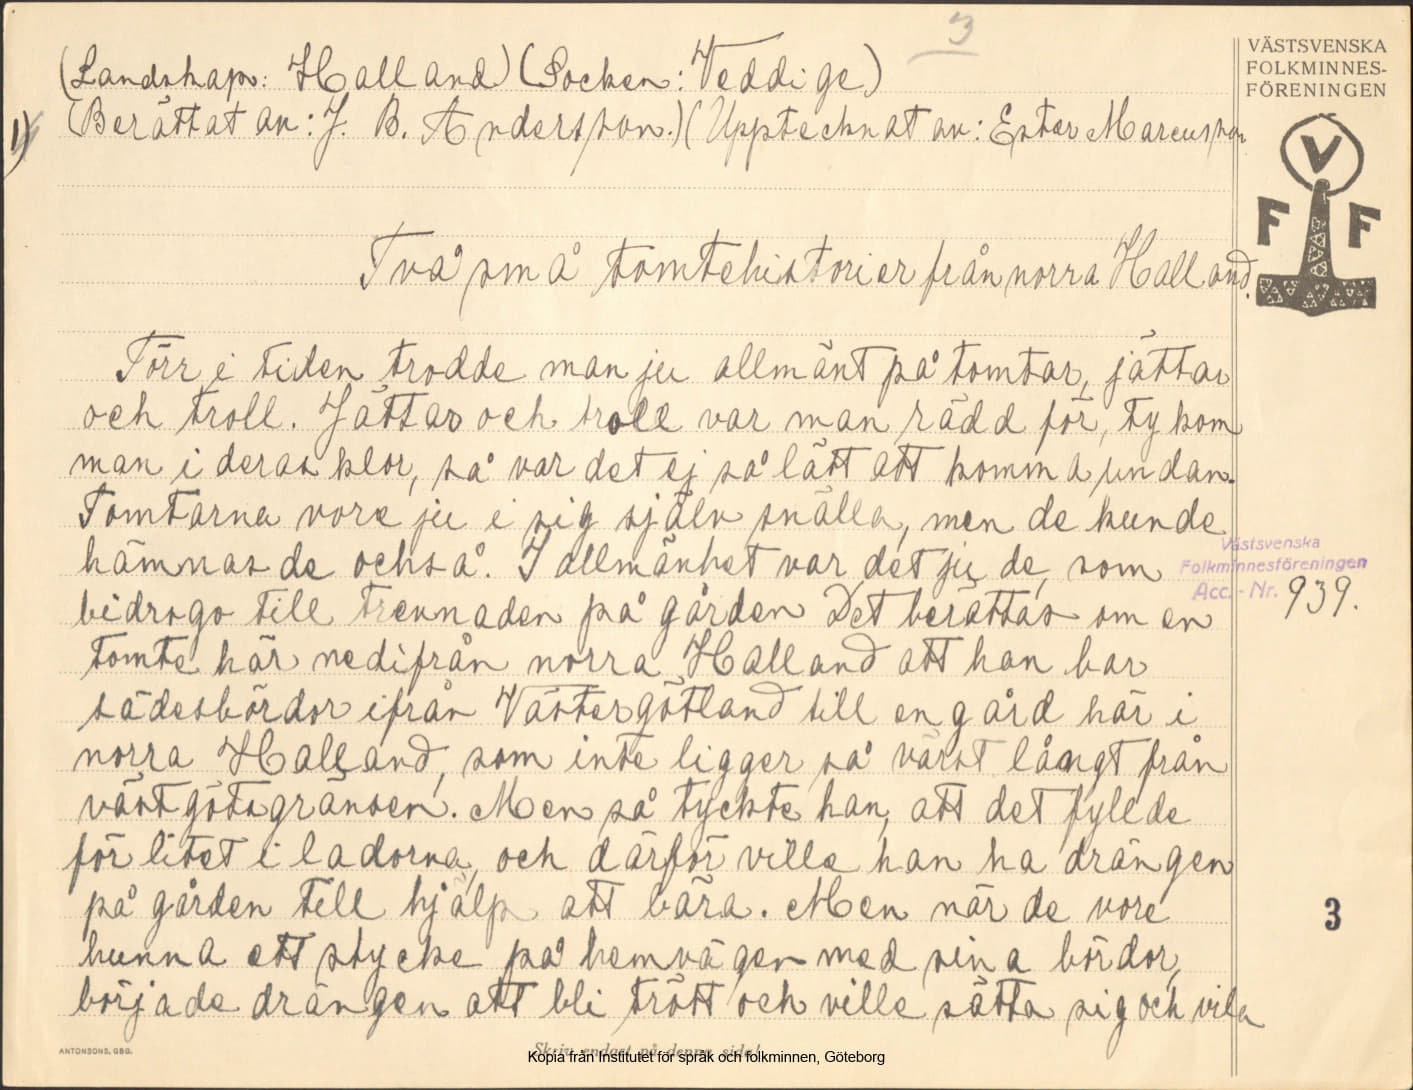 3
VÄSTSVENSKA
FOLKMINNES-
FÖRENINGEN
V
F F
(Landskap: Halland) (Socken: Veddige)
1) (Berättat av: J. B. Andersson.) (Upptecknat av: Ester Marcusson
Två små tomtehistorier från norra Halland.
Förr i tiden trodde man ju allmänt på tomtar, jättar
och troll. Jättar och troll var man rädd för, ty kom
man i deras klor, så var det ej så lätt att komma undan.
Tomtarna vore ju i sig själv snälla, men de kunde
hämnas de också. I allmänhet var det ju de, som
bidrogo till trevnaden på gården Det berättas om en
tomte här nedifrån norra Halland att han bar
sädesbördor ifrån Västergötland till en gård här i
norra Halland, som inte ligger så värst långt från
västgötagränsen. Men så tyckte han, att det fyllde
för litet i ladorna, och därför ville han ha drängen
på gården till hjälp att bära. Men när de vore
hunna ett stycke på hemvägen med sina bördor,
började drängen att bli trött och ville sätta sig och vila
Västsvenska
Folkminnesföreningen
Acc.-Nr. 939.
3
ANTONSONS, GBG.
Skriv endast på denna sida!
Kopia från Institutet för språk och folkminnen, Göteborg